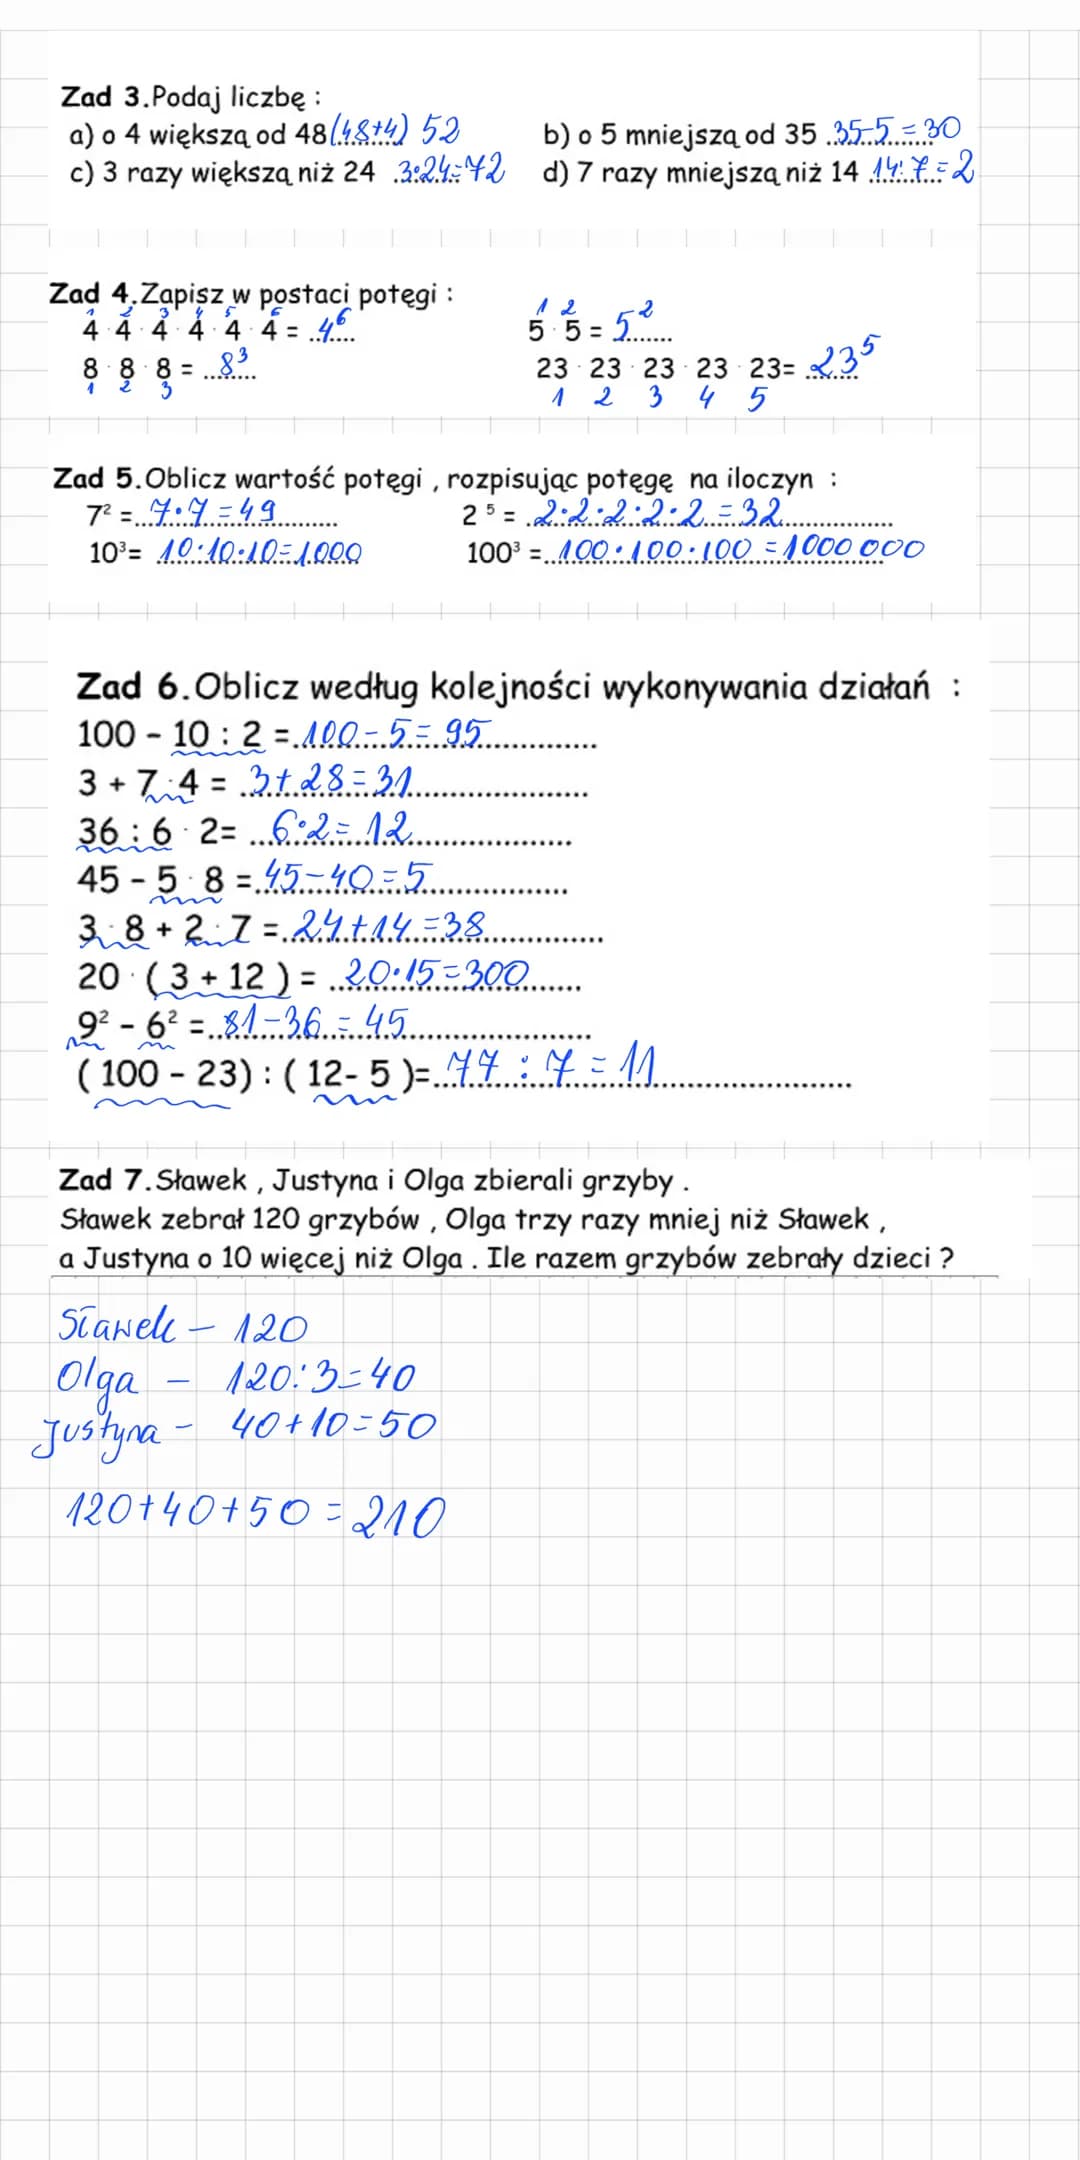 Zad 3.Podaj liczbę :
a) o 4 większą od 48 (48+4) 52 b) o 5 mniejszą od 35 35-5=30
c) 3 razy większą niż 24 3·24=72 d) 7 razy mniejszą niż 14 14:7=2
Zad 4.Zapisz w postaci potęgi :
1 2 3 4 5 6 1 2
4 · 4 · 4 · 4 · 4 · 4 = 4⁶ 5 · 5 = 5²
8 · 8 · 8 = 8³ 23 · 23 · 23 · 23 · 23= 23⁵
1 2 3 1 2 3 4 5
Zad 5.Oblicz wartość potęgi , rozpisując potęgę na iloczyn :
7² = 7·7=49 2⁵ = 2·2·2·2·2=32
10³= 10·10·10=1000 100³ = 100·100·100=1000 000
Zad 6.Oblicz według kolejności wykonywania działań :
100 - 10 : 2 = 100-5=95
3 + 7 · 4 = 3+28=31
36 : 6 · 2= 6·2=12
45 - 5 · 8 = 45-40=5
3 · 8 + 2 · 7 = 24+14=38
20 · ( 3 + 12 ) = 20·15=300
9² - 6² = 81-36=45
( 100 - 23) : ( 12- 5 )= 77:7=11
Zad 7.Sławek , Justyna i Olga zbierali grzyby .
Sławek zebrał 120 grzybów , Olga trzy razy mniej niż Sławek ,
a Justyna o 10 więcej niż Olga . Ile razem grzybów zebrały dzieci ?
Sławek - 120
Olga - 120:3=40
Justyna - 40+10=50
120+40+50=210